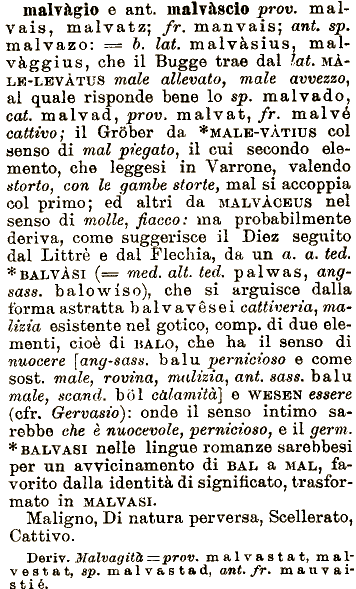 malvàgio e ant. malvàscio prov. mal-
vais, malvatz; fr. manvais; ant. sp.
malvazo: = b. lat. malvàsius, mal-
vàggius, che il Bugge trae dal lat. MÀ-
LE-LEVÀTUS male allevato, male avvezzo,
al quale risponde bene lo sp. malvado,
cat. malvad, prov. malvat, fr. malvé
cattivo; il Gröber da *MALE-VÀTIUS col
senso di mal piegato, il cui secondo ele-
mento, che leggesi in Varrone, valendo
storto, con le gambe storte, mal si accoppia
col primo; ed altri da MALVÀCEUS nel
senso di molle, fiacco: ma probabilmente
deriva, come suggerisce il Diez seguito
dal Littrè e dal Flechia, da un a. a. ted.
*BALVÀSI (= med. alt. ted. palwas, ang-
sass. balowiso), che si arguisce dalla
forma astratta balvavêsei cattiveria, ma-
lizia esistente nel gotico, comp. di due ele-
menti, cioè di BALO, che ha il senso di
nuocere [ang-sass. balu pernicioso e come
sost. male, rovina, malizia, ant. sass. balu
male, scand. böl calamità] e WESEN essere
(cfr. Gervasio): onde il senso intimo sa-
rebbe che è nuocevole, pernicioso, e il germ.
*BALVASI nelle lingue romanze sarebbesi
per un avvicinamento di BAL a MAL, fa-
vorito dalla identità di significato, trasfor-
mato in MALVASI.
Maligno, Di natura perversa, Scellerato,
Cattivo.
Deriv. Malvagità = prov. malvastat, mal-
vestat, sp. malvastad, ant. fr. mauvai-
stié.